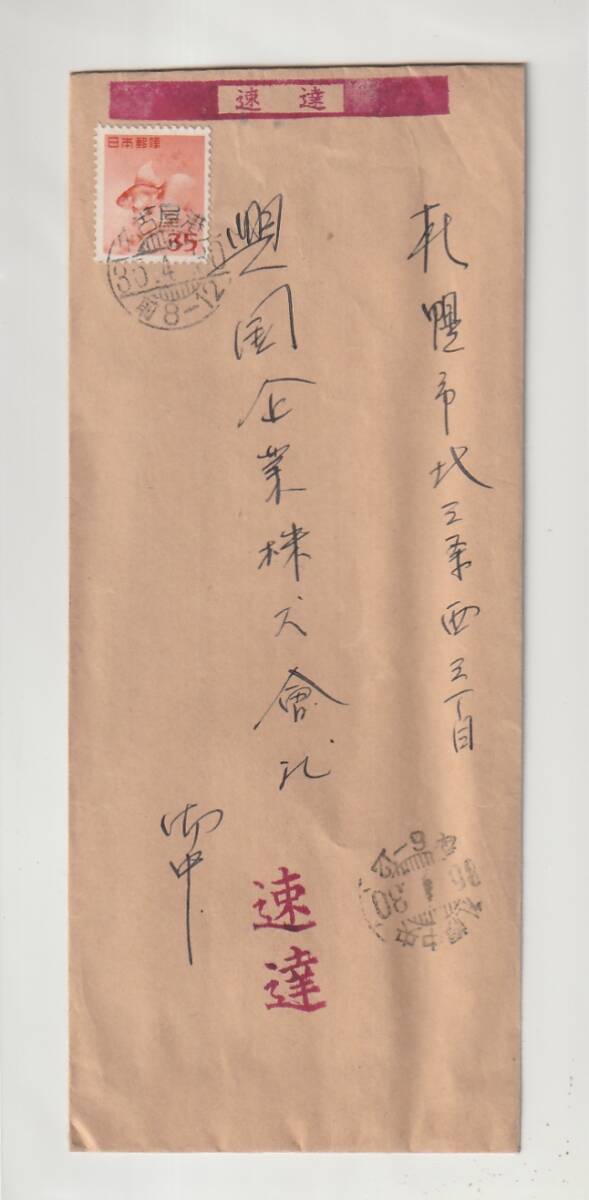 速達
日本郵便
35
名古屋港
35.4
8-12
札幌市北三条西三丁目
興国企業株式會社
御中
速達